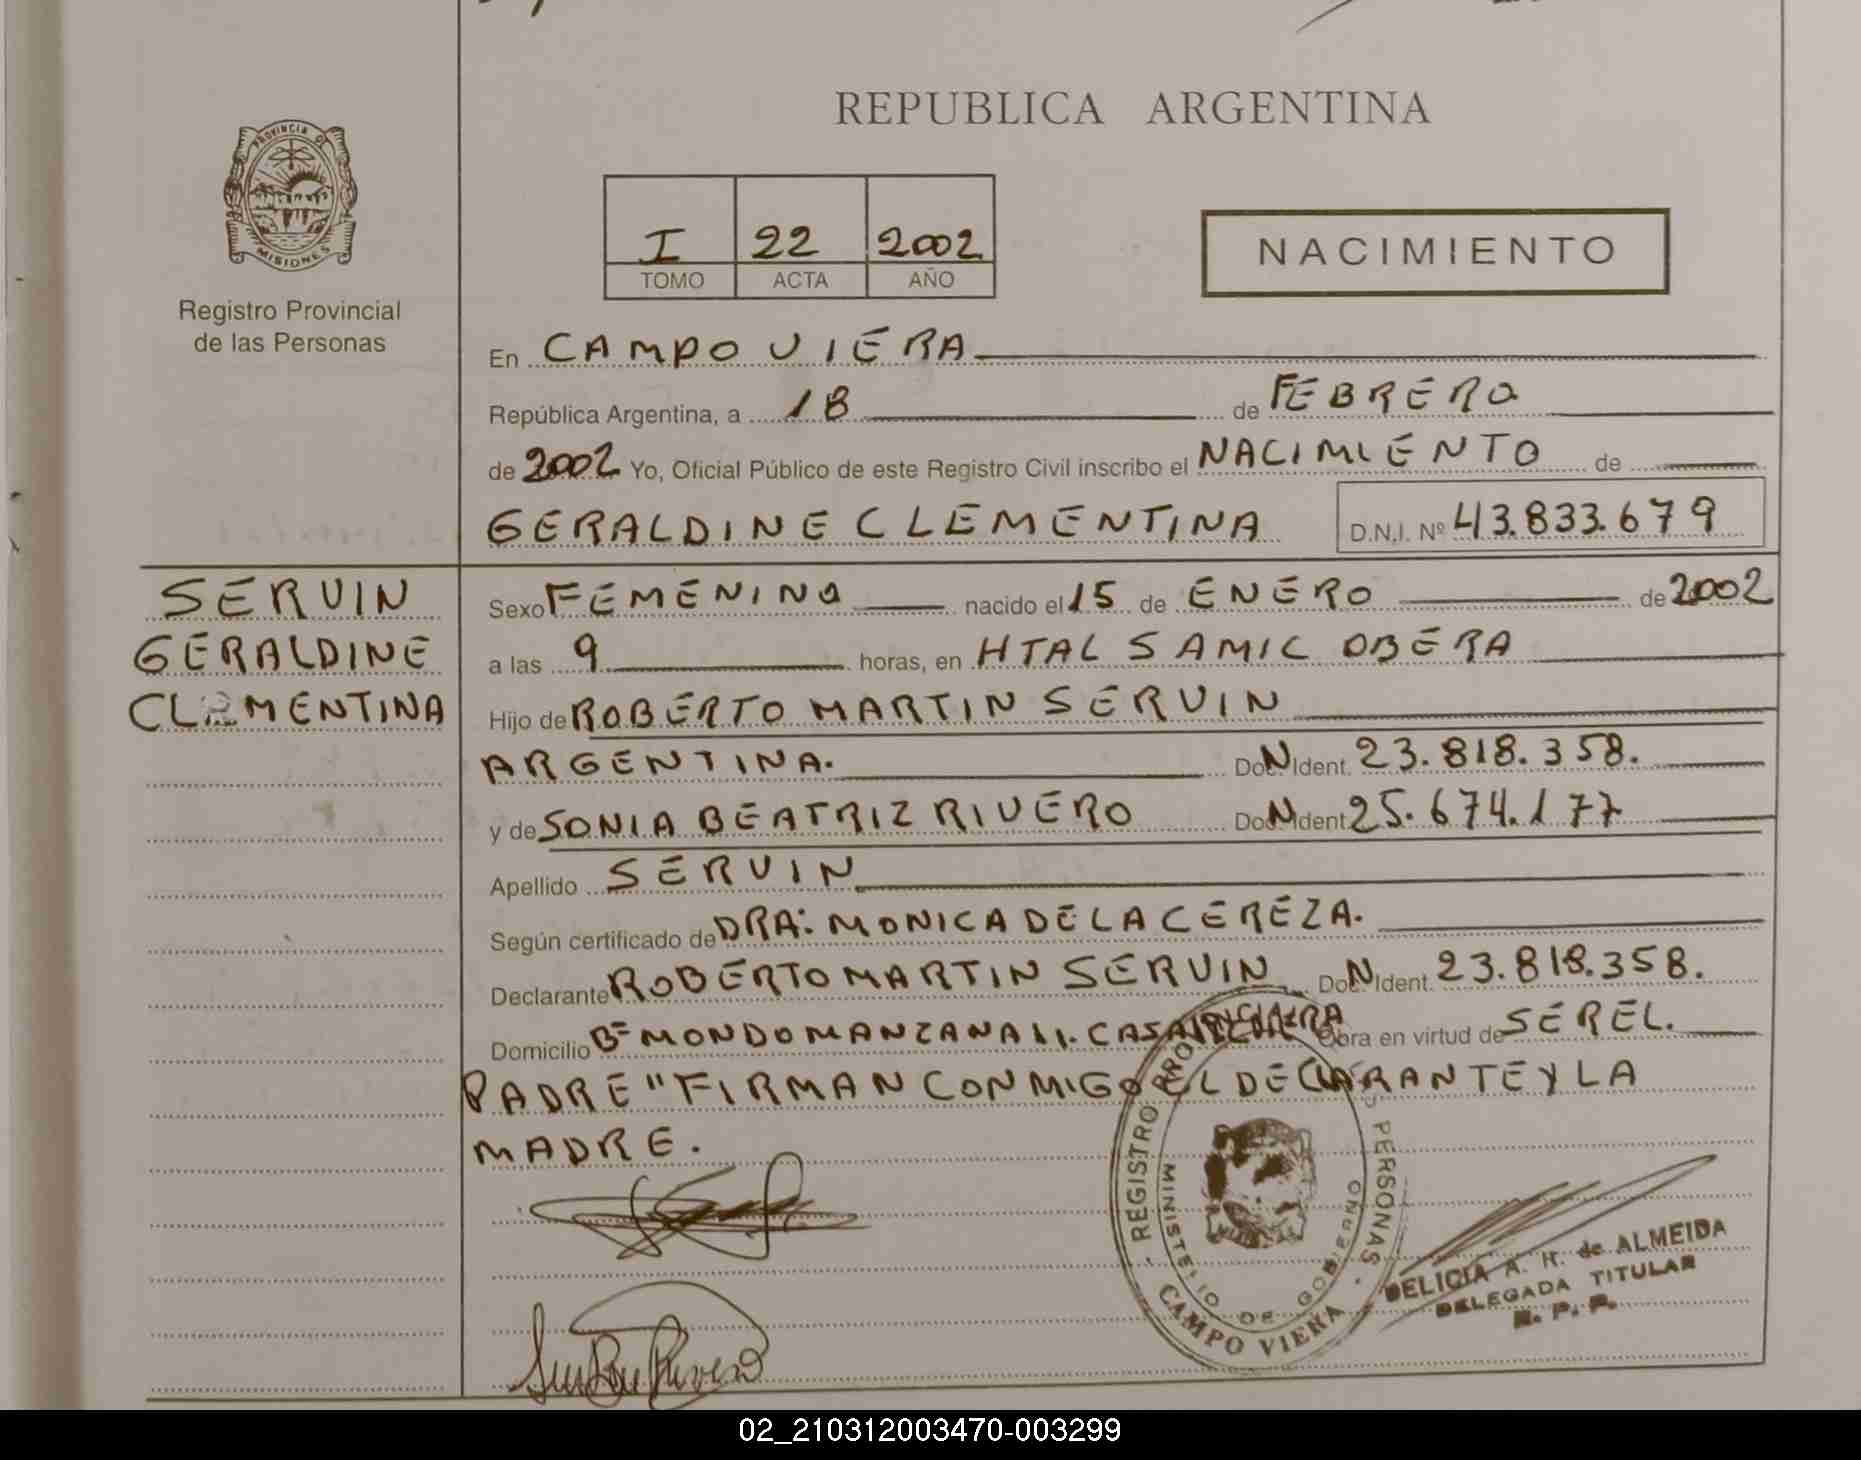 REPUBLICA ARGENTINA
PROVINCIA DE
MISIONES
Registro Provincial
de las Personas
I 22 2002
TOMO ACTA AÑO
NACIMIENTO
En CAMPO VIERA
República Argentina, a 18 de FEBRERO
de 2002 Yo, Oficial Público de este Registro Civil inscribo el NACIMIENTO de
GERALDINE CLEMENTINA D.N.I. Nº 43.833.679
SERVIN
GERALDINE
CLEMENTINA
Sexo FEMENINO nacido el 15 de ENERO de 2002
a las 9 horas, en HTAL SAMIC OBERA
Hijo de ROBERTO MARTIN SERVIN
ARGENTINA. Doc. N Ident. 23.818.358.
y de SONIA BEATRIZ RIVERO Doc. N Ident. 25.674.177
Apellido SERVIN
Según certificado de DRA: MONICA DE LA CEREZA.
Declarante ROBERTO MARTIN SERVIN Doc. N Ident. 23.818.358.
Domicilio Bº MONDO MANZANA 11. CASA Obra en virtud de SER EL.
PADRE "FIRMAN CONMIGO EL DECLARANTE Y LA
MADRE.
REGISTRO PROVINCIAL PERSONAS
MINISTERIO DE GOBIERNO
CAMPO VIERA
DELICIA A. H. de ALMEIDA
DELEGADA TITULAR
R. P. P.
02_210312003470-003299